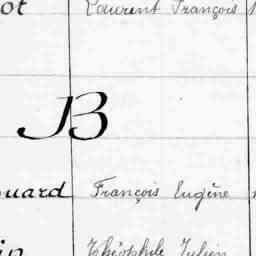 ot Laurent François
B
ouard François Eugène
in Théophile Julien